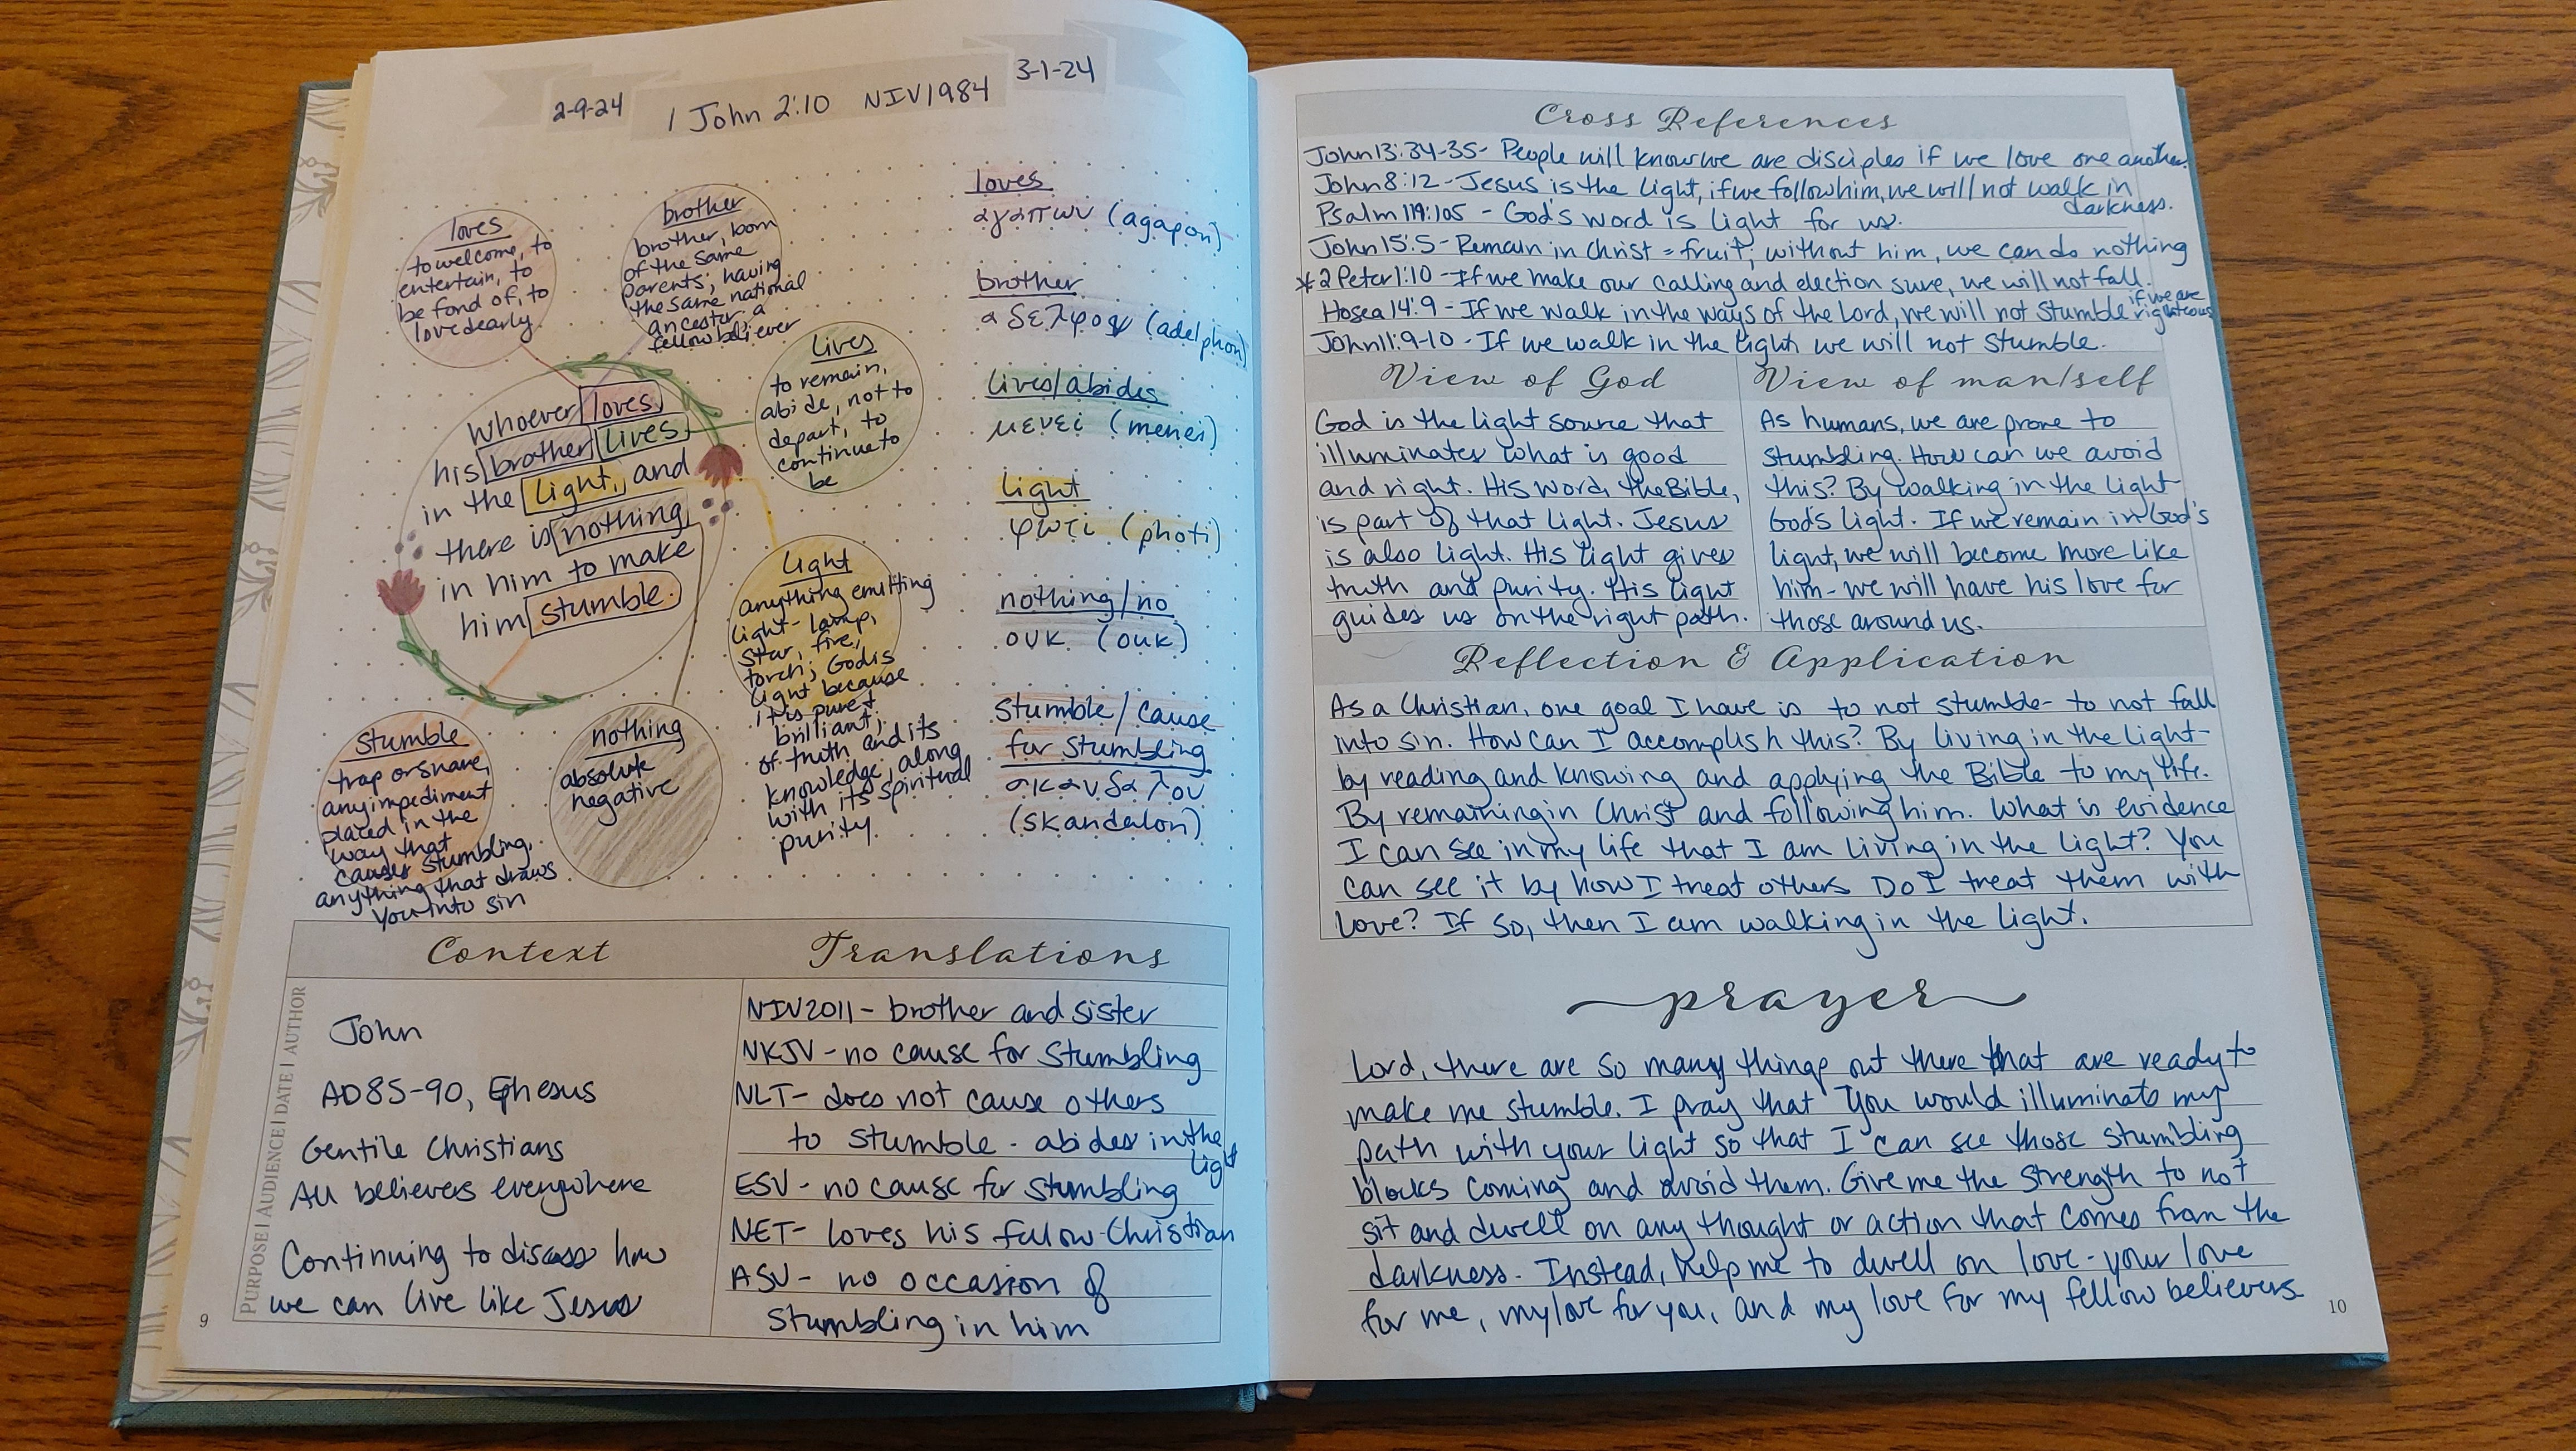 2-9-24
1 John 2:10 NIV1984
3-1-24
loves
to welcome, to
entertain, to
be fond of, to
love dearly
brother
brother, born
of the same
parents; having
the same national
ancestor; a
fellow believer
lives
to remain,
abide, not to
depart, to
continue to
be
whoever loves
his brother lives
in the light, and
there is nothing
in him to make
him stumble.
light
anything emitting
light - lamp,
star, fire,
torch; God is
light because
it is pure &
brilliant;
of truth and its
knowledge, along
with its spiritual
purity
stumble
trap or snare,
any impediment
placed in the
way that
causes stumbling,
anything that draws
you into sin
nothing
absolute
negative
loves
αγαπων (agapon)
brother
αδελφον (adelphon)
lives/abides
μενει (menei)
light
φωτι (photi)
nothing/no
ουκ (ouk)
stumble/cause
for stumbling
σκανδαλον
(skandalon)
Context
PURPOSE | AUDIENCE | DATE | AUTHOR
John
AD85-90, Ephesus
Gentile Christians
All believers everywhere
Continuing to discuss how
we can live like Jesus
Translations
NIV2011 - brother and sister
NKJV - no cause for stumbling
NLT - does not cause others
to stumble - abides in the
light
ESV - no cause for stumbling
NET - loves his fellow Christian
ASV - no occasion of
stumbling in him
9
Cross References
John 13:34-35 - People will know we are disciples if we love one another.
John 8:12 - Jesus is the light, if we follow him, we will not walk in
darkness.
Psalm 119:105 - God's word is light for us.
John 15:5 - Remain in Christ = fruit; without him, we can do nothing
* 2 Peter 1:10 - If we make our calling and election sure, we will not fall.
Hosea 14:9 - If we walk in the ways of the Lord, we will not stumble if we are
righteous
John 11:9-10 - If we walk in the light, we will not stumble.
View of God
God is the light source that
illuminates what is good
and right. His word, the Bible,
is part of that light. Jesus
is also light. His light gives
truth and purity. His light
guides us on the right path.
View of man/self
As humans, we are prone to
stumbling. How can we avoid
this? By walking in the light
God's light. If we remain in God's
light, we will become more like
him - we will have his love for
those around us.
Reflection & Application
As a Christian, one goal I have is to not stumble - to not fall
into sin. How can I accomplish this? By living in the light -
by reading and knowing and applying the Bible to my life.
By remaining in Christ and following him. What is evidence
I can see in my life that I am living in the light? You
can see it by how I treat others Do I treat them with
love? If so, then I am walking in the light.
prayer
Lord, there are so many things out there that are ready to
make me stumble. I pray that You would illuminate my
path with your light so that I can see those stumbling
blocks coming and avoid them. Give me the strength to not
sit and dwell on any thought or action that comes from the
darkness. Instead, help me to dwell on love - your love
for me, my love for you, and my love for my fellow believers
10